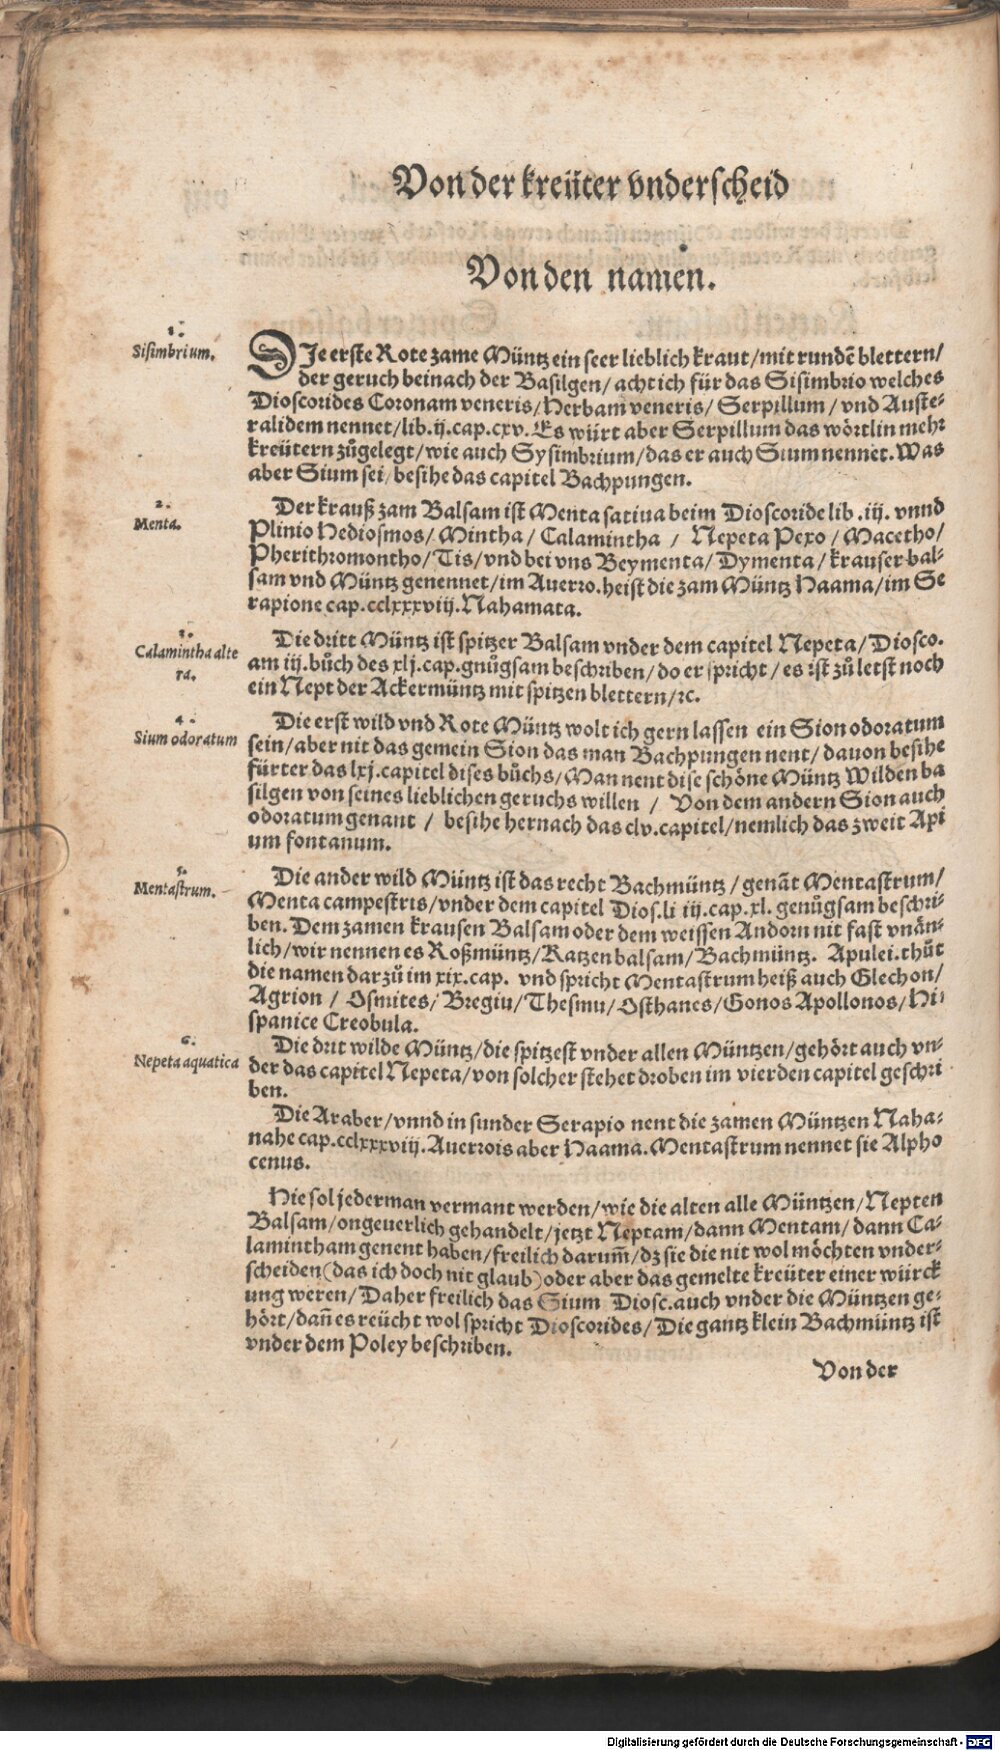 Von der kreüter vnderscheid
Von den namen.
1.
Sisimbrium.
DJe erste Rote zame Müntz ein seer lieblich kraut/mit rundē blettern/
der geruch beinach der Basilgen/acht ich für das Sisimbrio welches
Dioscorides Coronam veneris/Herbam veneris/ Serpillum / vnd Auste-
ralidem nennet/lib.ij.cap.cxv. Es würt aber Serpillum das wörtlin mehr
kreütern zůgelegt/wie auch Sysimbrium/das er auch Sium nennet. Was
aber Sium sei/besihe das capitel Bachpungen.
2.
Menta.
Der krauß zam Balsam ist Menta satiua beim Dioscoride lib.iij. vnnd
Plinio Hediosmos/Mintha/Calamintha / Nepeta Pexo/Macetho/
Pherithromontho/Tis/vnd bei vns Beymenta/Dymenta/krauser bal-
sam vnd Müntz genennet/im Auerro.heist die zam Müntz Naama/im Se
rapione cap.cclxxxviij.Nahamata.
3.
Calamintha alte
ra.
Die dritt Müntz ist spitzer Balsam vnder dem capitel Nepeta/Diosco.
am iij.bůch des xlj.cap.gnůgsam beschriben/do er spricht/es ist zů letst noch
ein Nept der Ackermüntz mit spitzen blettern/ꝛc.
4.
Sium odoratum
Die erst wild vnd Rote Müntz wolt ich gern lassen ein Sion odoratum
sein/aber nit das gemein Sion das man Bachpungen nent/dauon besihe
fürter das lxj.capitel dises bůchs/Man nent dise schöne Müntz Wilden ba
silgen von seines lieblichen geruchs willen / Von dem andern Sion auch
odoratum genant / besihe hernach das clv.capitel/nemlich das zweit Api
um fontanum.
5.
Mentastrum.
Die ander wild Müntz ist das recht Bachmüntz/genāt Mentastrum/
Menta campestris/vnder dem capitel Dios.li iij.cap.xl. genůgsam beschri-
ben. Dem zamen krausen Balsam oder dem weissen Andorn nit fast vnän-
lich/wir nennen es Roßmüntz/Katzenbalsam/Bachmüntz. Apulei.thůt
die namen darzů im xix.cap. vnd spricht Mentastrum heiß auch Glechon/
Agrion / Osmites/Bregiu/Thesmu/Osthanes/Gonos Apollonos/Hi-
spanice Creobula.
6.
Nepeta aquatica
Die drit wilde Müntz/die spitzest vnder allen Müntzen/gehört auch vn-
der das capitel Nepeta/von solcher stehet droben im vierden capitel geschri
ben.
Die Araber/vnnd in sunder Serapio nent die zamen Müntzen Naha-
nahe cap.cclxxxviij.Auerrois aber Naama.Mentastrum nennet sie Alpho
cenus.
Hie sol jederman vermant werden/wie die alten alle Müntzen/Nepten
Balsam/ongeuerlich gehandelt/jetzt Neptam/dann Mentam/dann Ca-
lamintham genent haben/freilich darum̄/dz sie die nit wol möchten vnder-
scheiden(das ich doch nit glaub)oder aber das gemelte kreüter einer würck
ung weren/Daher freilich das Sium Diosc.auch vnder die Müntzen ge-
hört/dan̄ es reücht wol spricht Dioscorides/Die gantz klein Bachmüntz ist
vnder dem Poley beschriben.
Von der
Digitalisierung gefördert durch die Deutsche Forschungsgemeinschaft - DFG